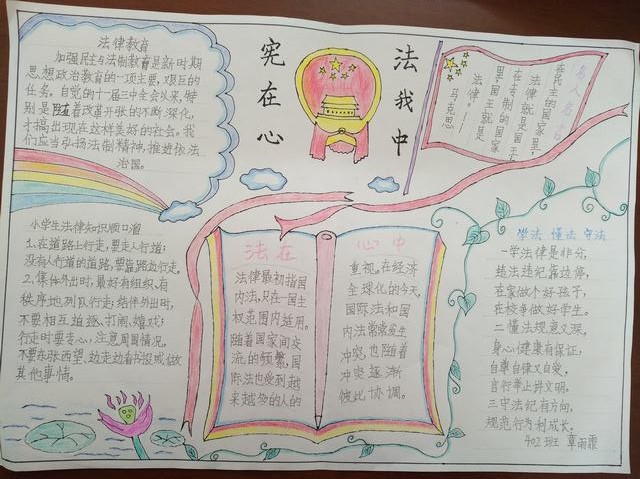 法律教育
加强民主与法制教育是新时期
思想政治教育的一项主要,艰巨的
任务。自党的十一届三中全会以来,特
别是随着改革开张的不断深化,
才搞出现在这样美好的社会。我
们应当弘扬法制精神,推进依法
治国。
宪法
在我
心中
名人名言
在民主的国家里,
法律就是国王;
在专制的国家
里,国王就是
法律。
马克思
小学生法律知识顺口溜
1、在道路上行走,要走人行道;
没有人行道的道路,要靠路边行走,
2、集体外出时,最好有组织、有
秩序地列队行走;结伴外出时,
不要相互追逐、打闹、嬉戏;
行走时要专心,注意周围情况,
不要东张西望、边走边看书报或做
其他事情。
法在
心中
法律最初指国
内法,只在一国主
权范围内适用。
随着国家间交
流的频繁,国
际法也受到越
来越多的人的
重视,在经济
全球化的今天,
国际法和国
内法常常发生
冲突,也随着
冲突逐渐
彼此协调。
学法 懂法 守法
一学法律是非分,
违法违纪靠边停,
在家做个好孩子,
在校争做好学生。
二懂法规意义深,
身心健康有保证,
自尊自律又自爱,
言行举止讲文明,
三守法纪有方向,
规范行为利成长。
402班 覃雨霏